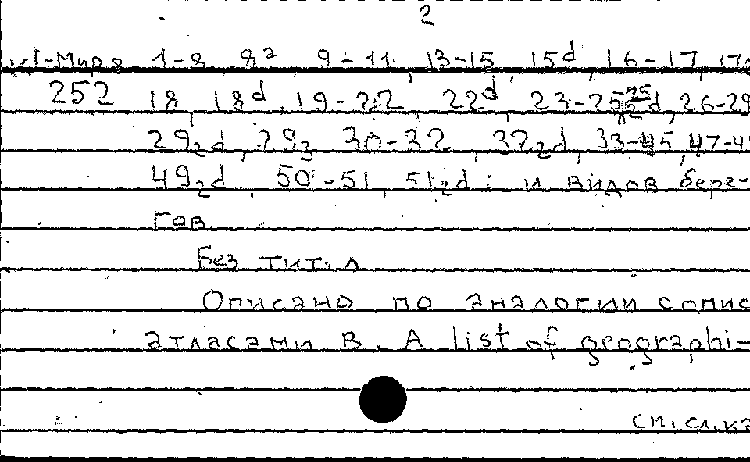 2
1-Мира 1-8, 8ª 9-11, 13-15, 15d, 16-17, 17
252 18, 18d, 19-22, 22d, 23-25, 26-29
29₂d, 29₃ 30-32, 32₂d, 33-45, 47-4
49₂d, 50-51, 51₂d; и видов берег-
гов
Без тит. л
Описано по аналогии с опис
атласами в. A list of geographi-
См. сл. ка